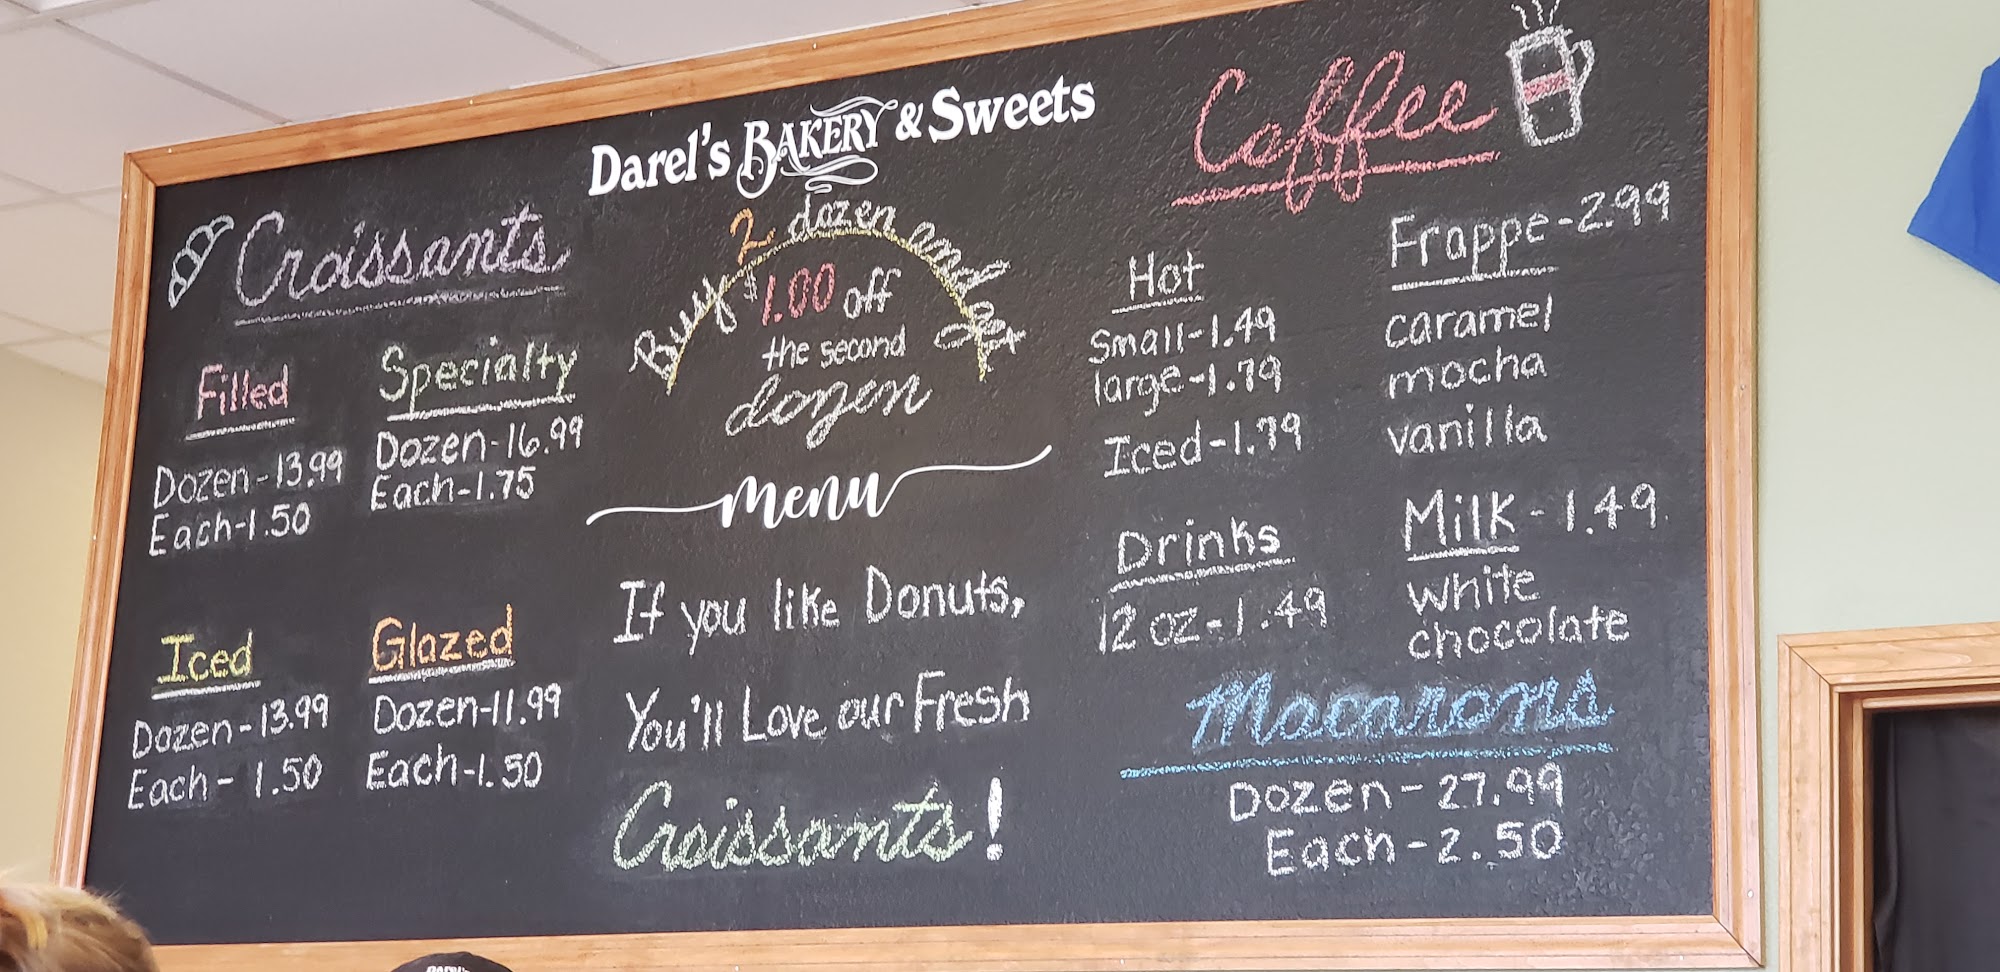 Darel's BAKERY & Sweets
Croissants
Filled
Dozen-13.99
Each-1.50
Specialty
Dozen-16.99
Each-1.75
Iced
Dozen-13.99
Each-1.50
Glazed
Dozen-11.99
Each-1.50
Buy 2 dozen and get
$1.00 off
the second
dozen
menu
If you like Donuts,
You'll Love our Fresh
Croissants!
Coffee
Hot
Small-1.49
large-1.79
Iced-1.79
Frappe-2.99
caramel
mocha
vanilla
Drinks
12 oz-1.49
Milk-1.49
white
chocolate
Macarons
Dozen-27.99
Each-2.50